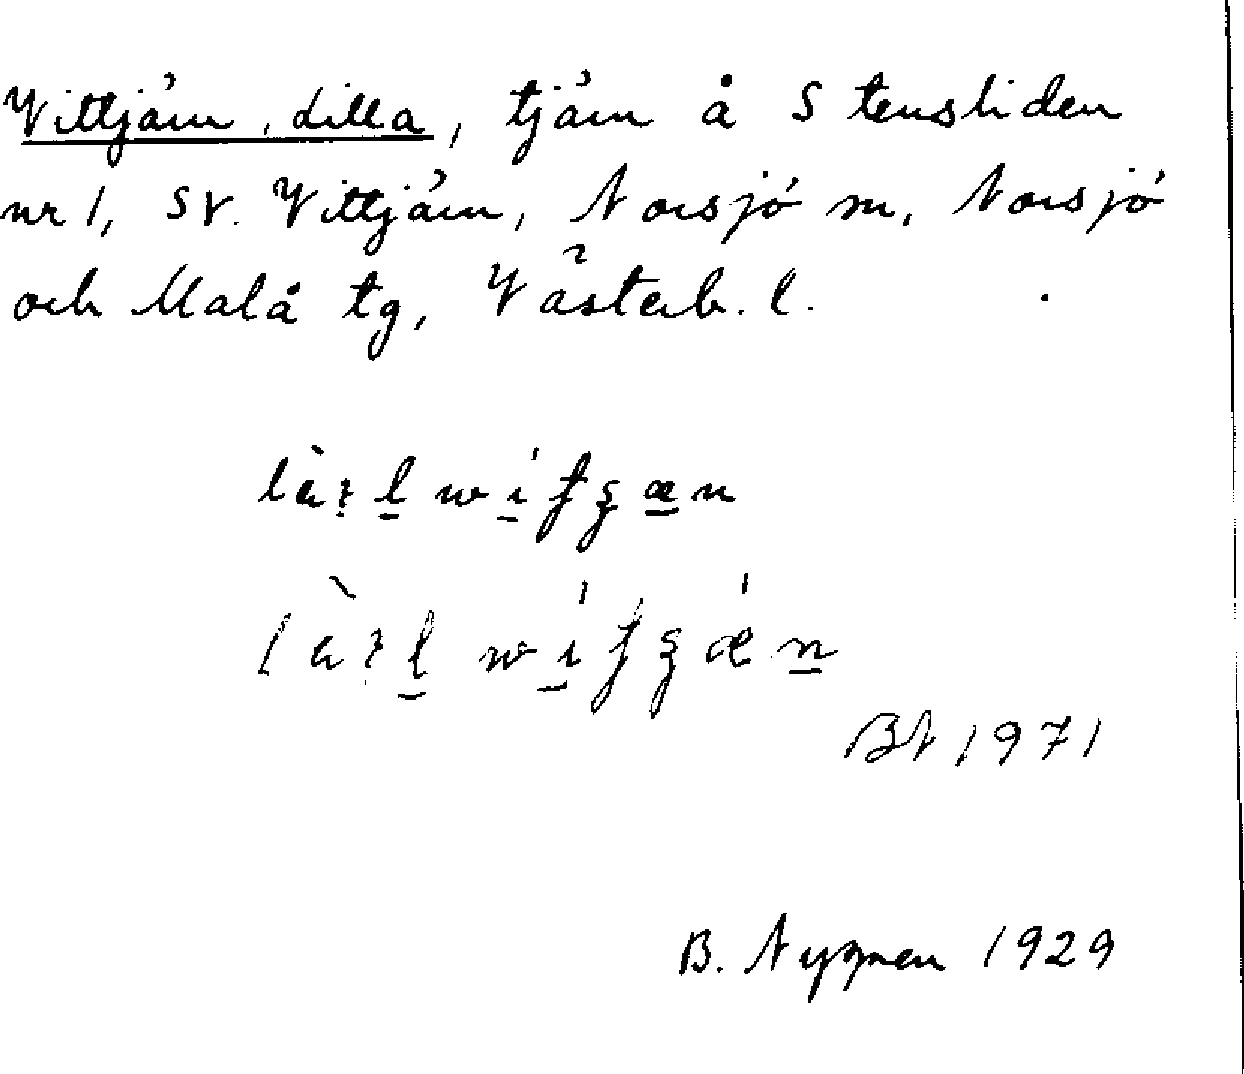 Vittjärn, Lilla, tjärn å Stensliden
nr 1, SV. Vittjärn, Norsjö sn, Norsjö
och Malå tg, Västerb. l.
BN 1971
B. Nygren 1929